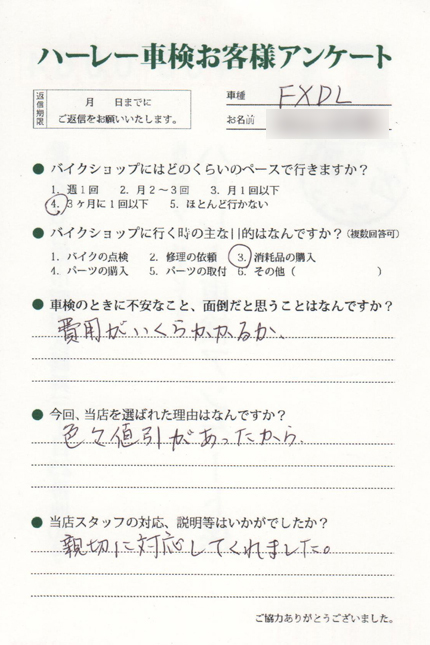 ハーレー車検お客様アンケート
返信期限
月　　日までに
ご返信をお願いいたします。
車種 FXDL
お名前
● バイクショップにはどのくらいのペースで行きますか？
1. 週1回　2. 月2～3回　3. 月1回以下
4. 3ヶ月に1回以下　5. ほとんど行かない
● バイクショップに行く時の主な目的はなんですか？（複数回答可）
1. バイクの点検　2. 修理の依頼　3. 消耗品の購入
4. パーツの購入　5. パーツの取付　6. その他（　　　　　　　）
● 車検のときに不安なこと、面倒だと思うことはなんですか？
費用がいくらかかるか、
● 今回、当店を選ばれた理由はなんですか？
色々値引があったから、
● 当店スタッフの対応、説明等はいかがでしたか？
親切に対応してくれました。
ご協力ありがとうございました。